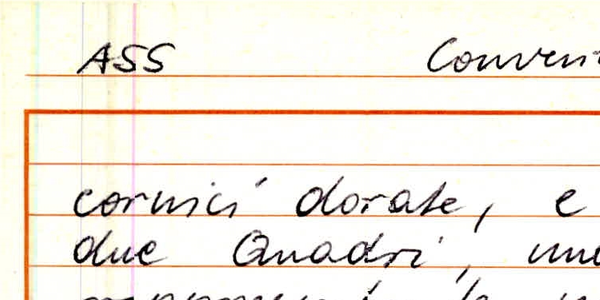 ASS Conven
cornici dorate, e
due Quadri, uno